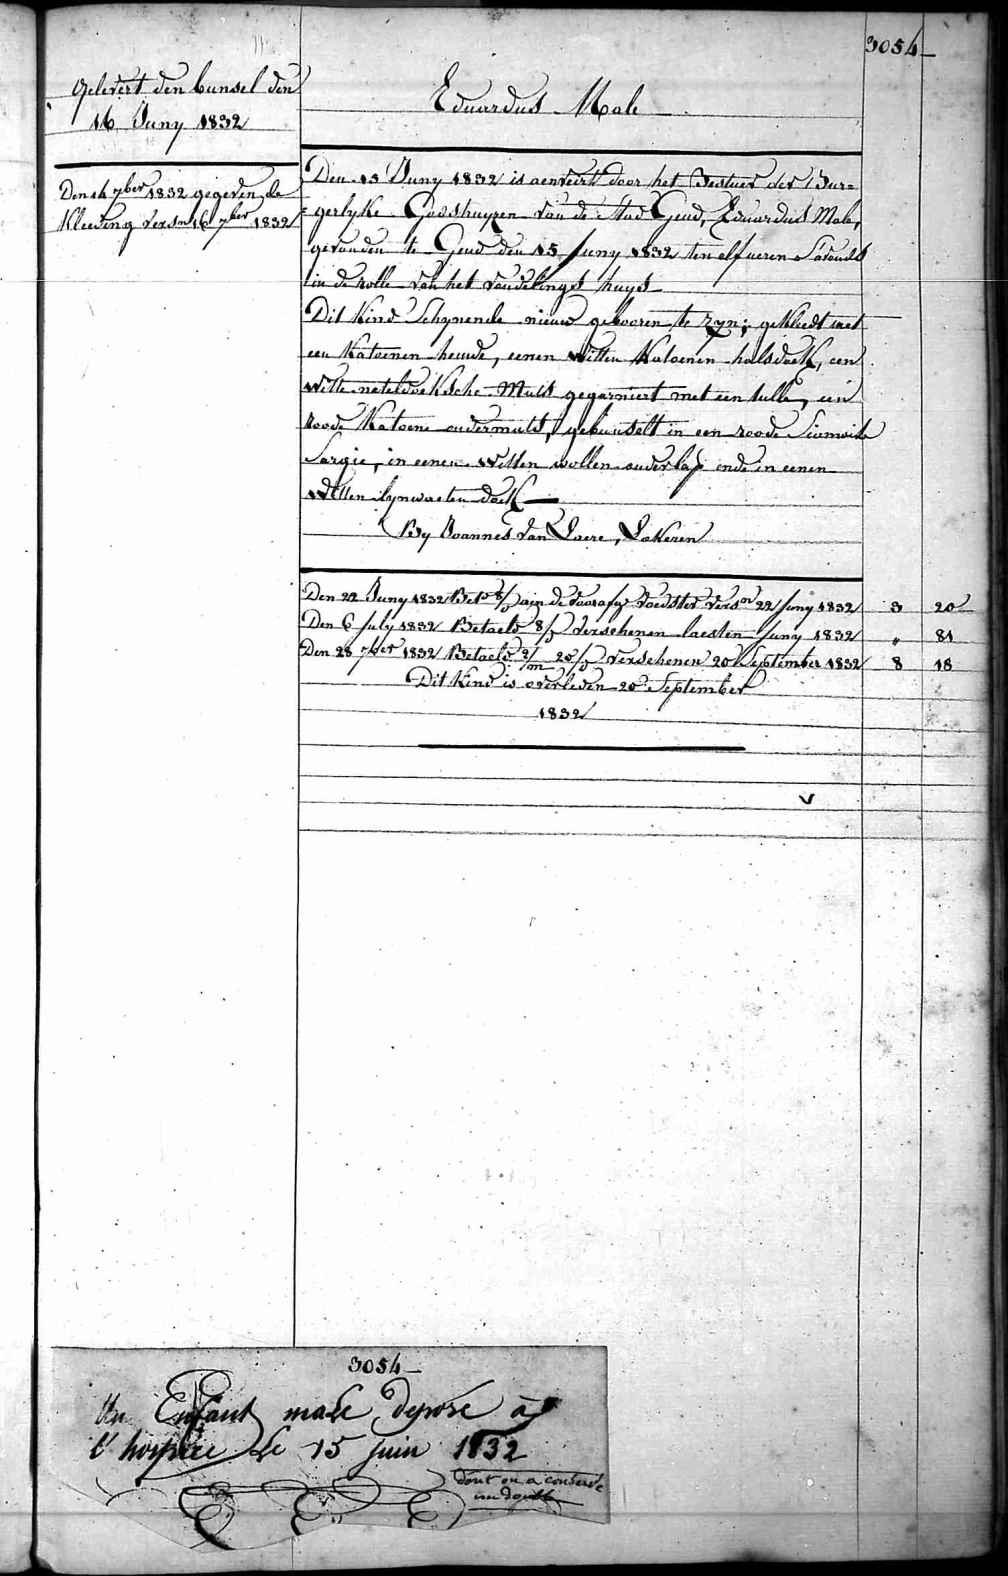 3054
Gelevert den bunsel den
16 Juny 1832
Eduardus Male
Den 14 7ber 1832 gegeven de
kleeding versn 16 7ber 1832
Den 15 Juny 1832 is aenveirt door het Bestuer der Bur=
=gerlyke Godshuyzen van de Stad Gend, Eduardus Male,
gevonden te Gend den 15 Juny 1832 ten elf ueren s'avonds
in de rolle van het vondelings huys
Dit Kind schynende nieuw gebooren te zyn; gekleedt met
een Katoenen hemde, eenen witten Katoenen halsdoek, een
witte neteldoeksche Muts gegarniert met een tulle, een
roode Katoene ondermuts, gebunselt in een roode
Sargie, in eenen witten wollen onderlap ende in eenen
witten lynwaeten doek
By Joannes Van Laere, Lokeren
Den 22 Juny 1832 Bet d 8/ aen de voorafg. voedster versn 22 Juny 1832 3 20
Den 6 July 1832 Betaeld 8/ verschenen laesten Juny 1832 " 81
Den 28 7ber 1832 Betaeld 2/m 20/ verschenen 20 September 1832 8 18
Dit Kind is overleden 20 September
1832
3054
Un Enfant male déposé à
l'hospice le 15 juin 1832
dont on a conservé
un double